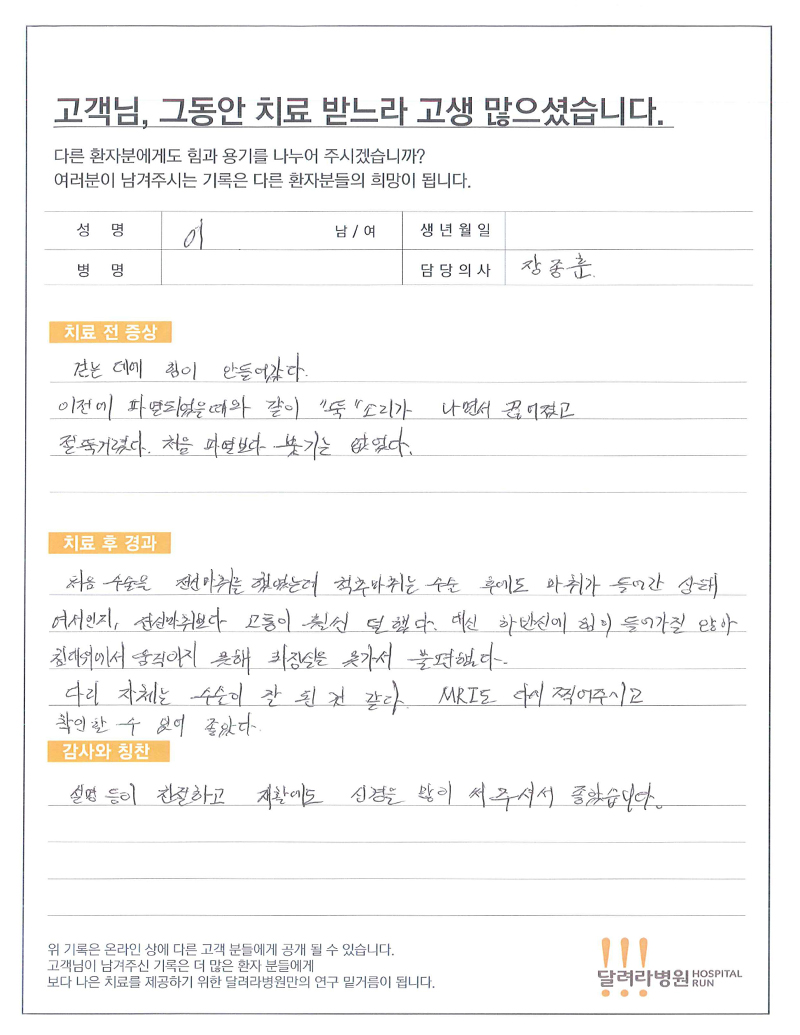 고객님, 그동안 치료 받느라 고생 많으셨습니다.
다른 환자분에게도 힘과 용기를 나누어 주시겠습니까?
여러분이 남겨주시는 기록은 다른 환자분들의 희망이 됩니다.
성 명 이 남 / 여 생년월일
병 명 담당의사 장종훈.
치료 전 증상
걷는 데에 힘이 안들어갔다.
이전에 파열되었을때와 같이 "뚝"소리가 나면서 끊어졌고
절뚝거렸다. 처음 파열보다 붓기는 없었다.
치료 후 경과
처음 수술을 전신마취를 했었는데 척추마취는 수술 후에도 마취가 들어간 상태
여서인지, 전신마취보다 고통이 훨씬 덜했다. 대신 하반신에 힘이 들어가질 않아
침대위에서 움직이지 못해 화장실을 못가서 불편했다.
다리 자체는 수술이 잘 된 것 같다. MRI도 다시 찍어주시고
확인할 수 있어 좋았다.
감사와 칭찬
설명 등이 친절하고 재활에도 신경을 많이 써주셔서 좋았습니다.
위 기록은 온라인 상에 다른 고객 분들에게 공개 될 수 있습니다.
고객님이 남겨주신 기록은 더 많은 환자 분들에게
보다 나은 치료를 제공하기 위한 달려라병원만의 연구 밑거름이 됩니다.
달려라병원 HOSPITAL RUN